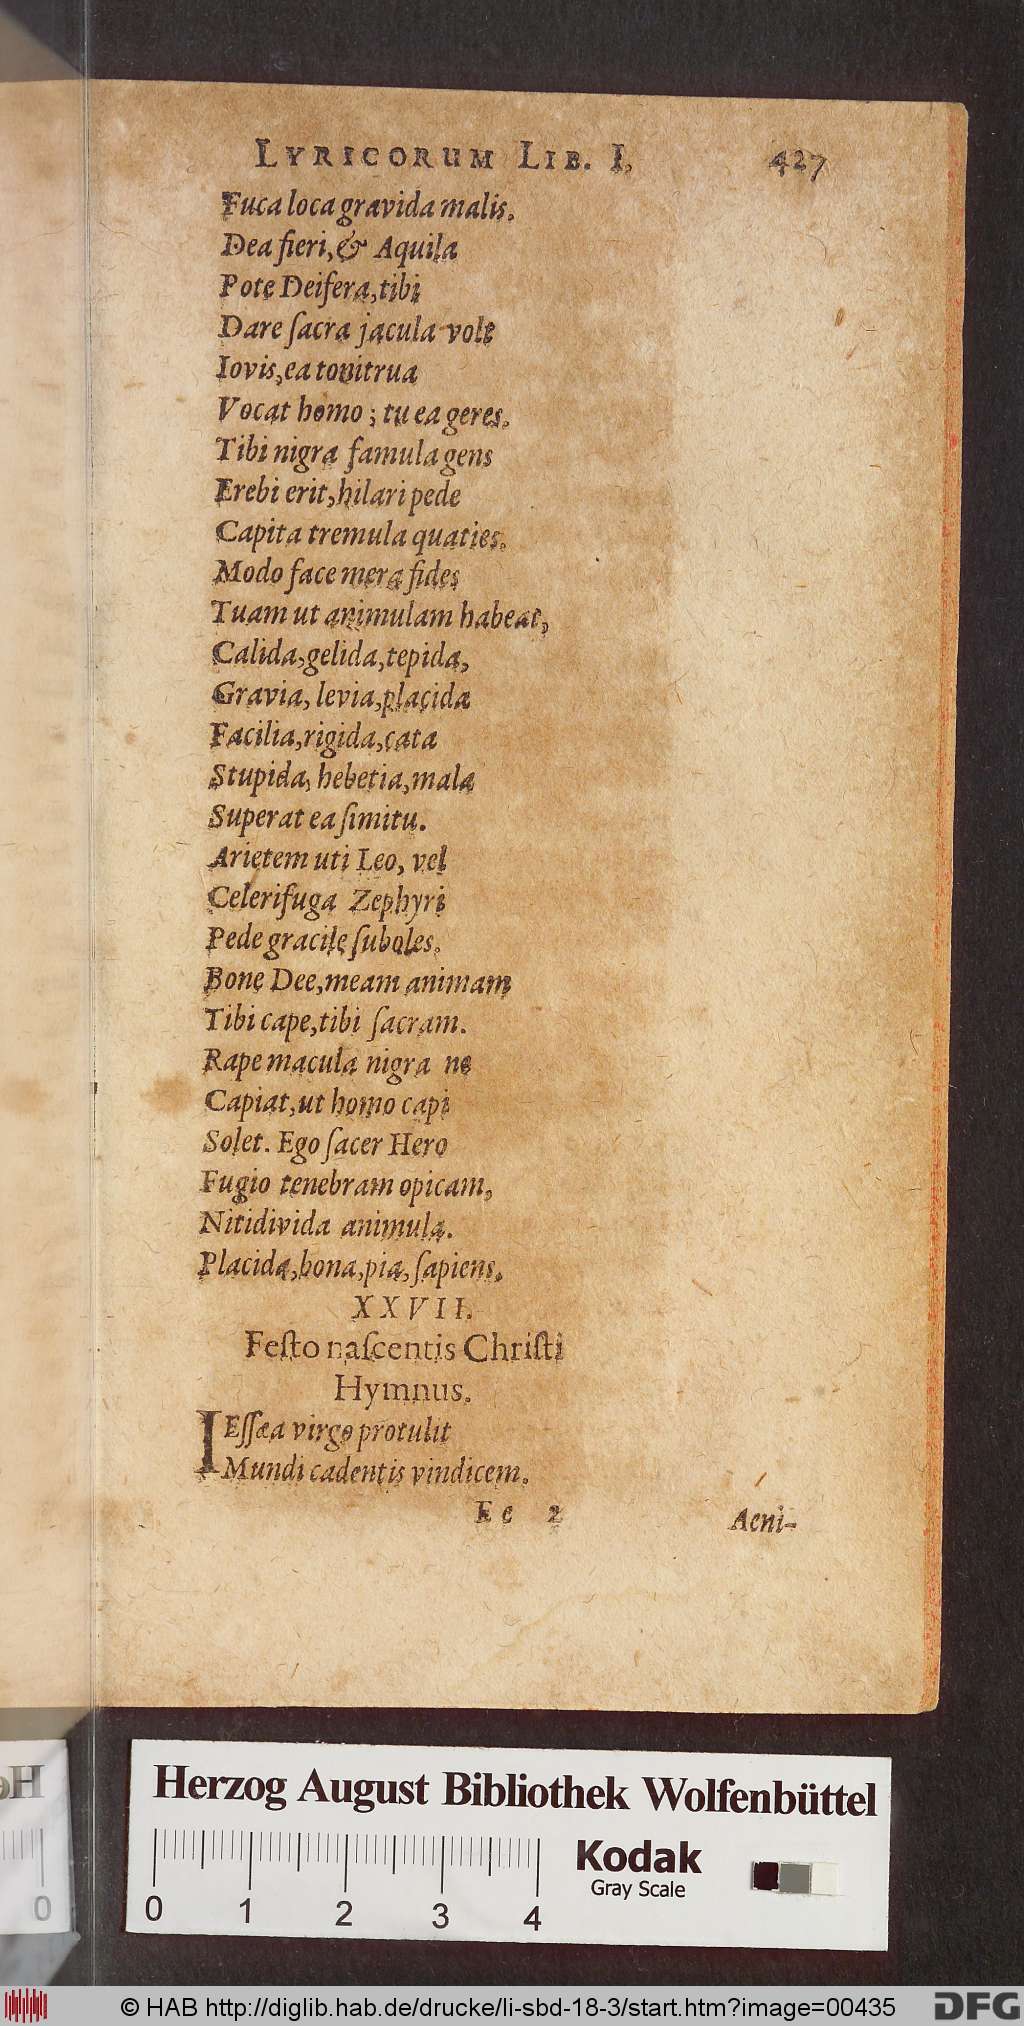 LYRICORUM LIB. I. 427
Fuca loca gravida malis.
Dea fieri, & Aquila
Pote Deifera, tibi
Dare ſacra jacula volt
Iovis, ea tonitrua
Vocat homo ; tu ea geres.
Tibi nigra famula gens
Erebi erit, hilari pede
Capita tremula quaties.
Modo face mera fides
Tuam ut animulam habeat,
Calida, gelida, tepida,
Gravia, levia, placida
Facilia, rigida, cata
Stupida, hebetia, mala
Superat ea ſimitu.
Arietem uti Leo, vel
Celerifuga Zephyri
Pede gracile ſuboles.
Bone Dee, meam animam
Tibi cape, tibi ſacram.
Rape macula nigra ne
Capiat, ut homo capi
Solet. Ego ſacer Hero
Fugio tenebram opicam,
Nitidivida animula.
Placida, bona, pia, ſapiens.
XXVII.
Feſto naſcentis Chriſti
Hymnus.
IEſſæa virgo protulit
Mundi cadentis vindicem.
Ee 2 Aeni-
Herzog August Bibliothek Wolfenbüttel
Kodak
Gray Scale
0 1 2 3 4
0
© HAB http://diglib.hab.de/drucke/li-sbd-18-3/start.htm?image=00435
DFG